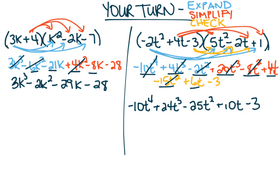 YOUR TURN EXPAND
SIMPLIFY
CHECK
(3k+4)(k²-2k-7)
3k³-6k²-21k+4k²-8k-28
3k³-2k²-29k-28
(-2t²+4t-3)(5t²-2t+1)
-10t⁴+4t³-2t²+20t³-8t²+4t
-15t²+6t-3
-10t⁴+24t³-25t²+10t-3